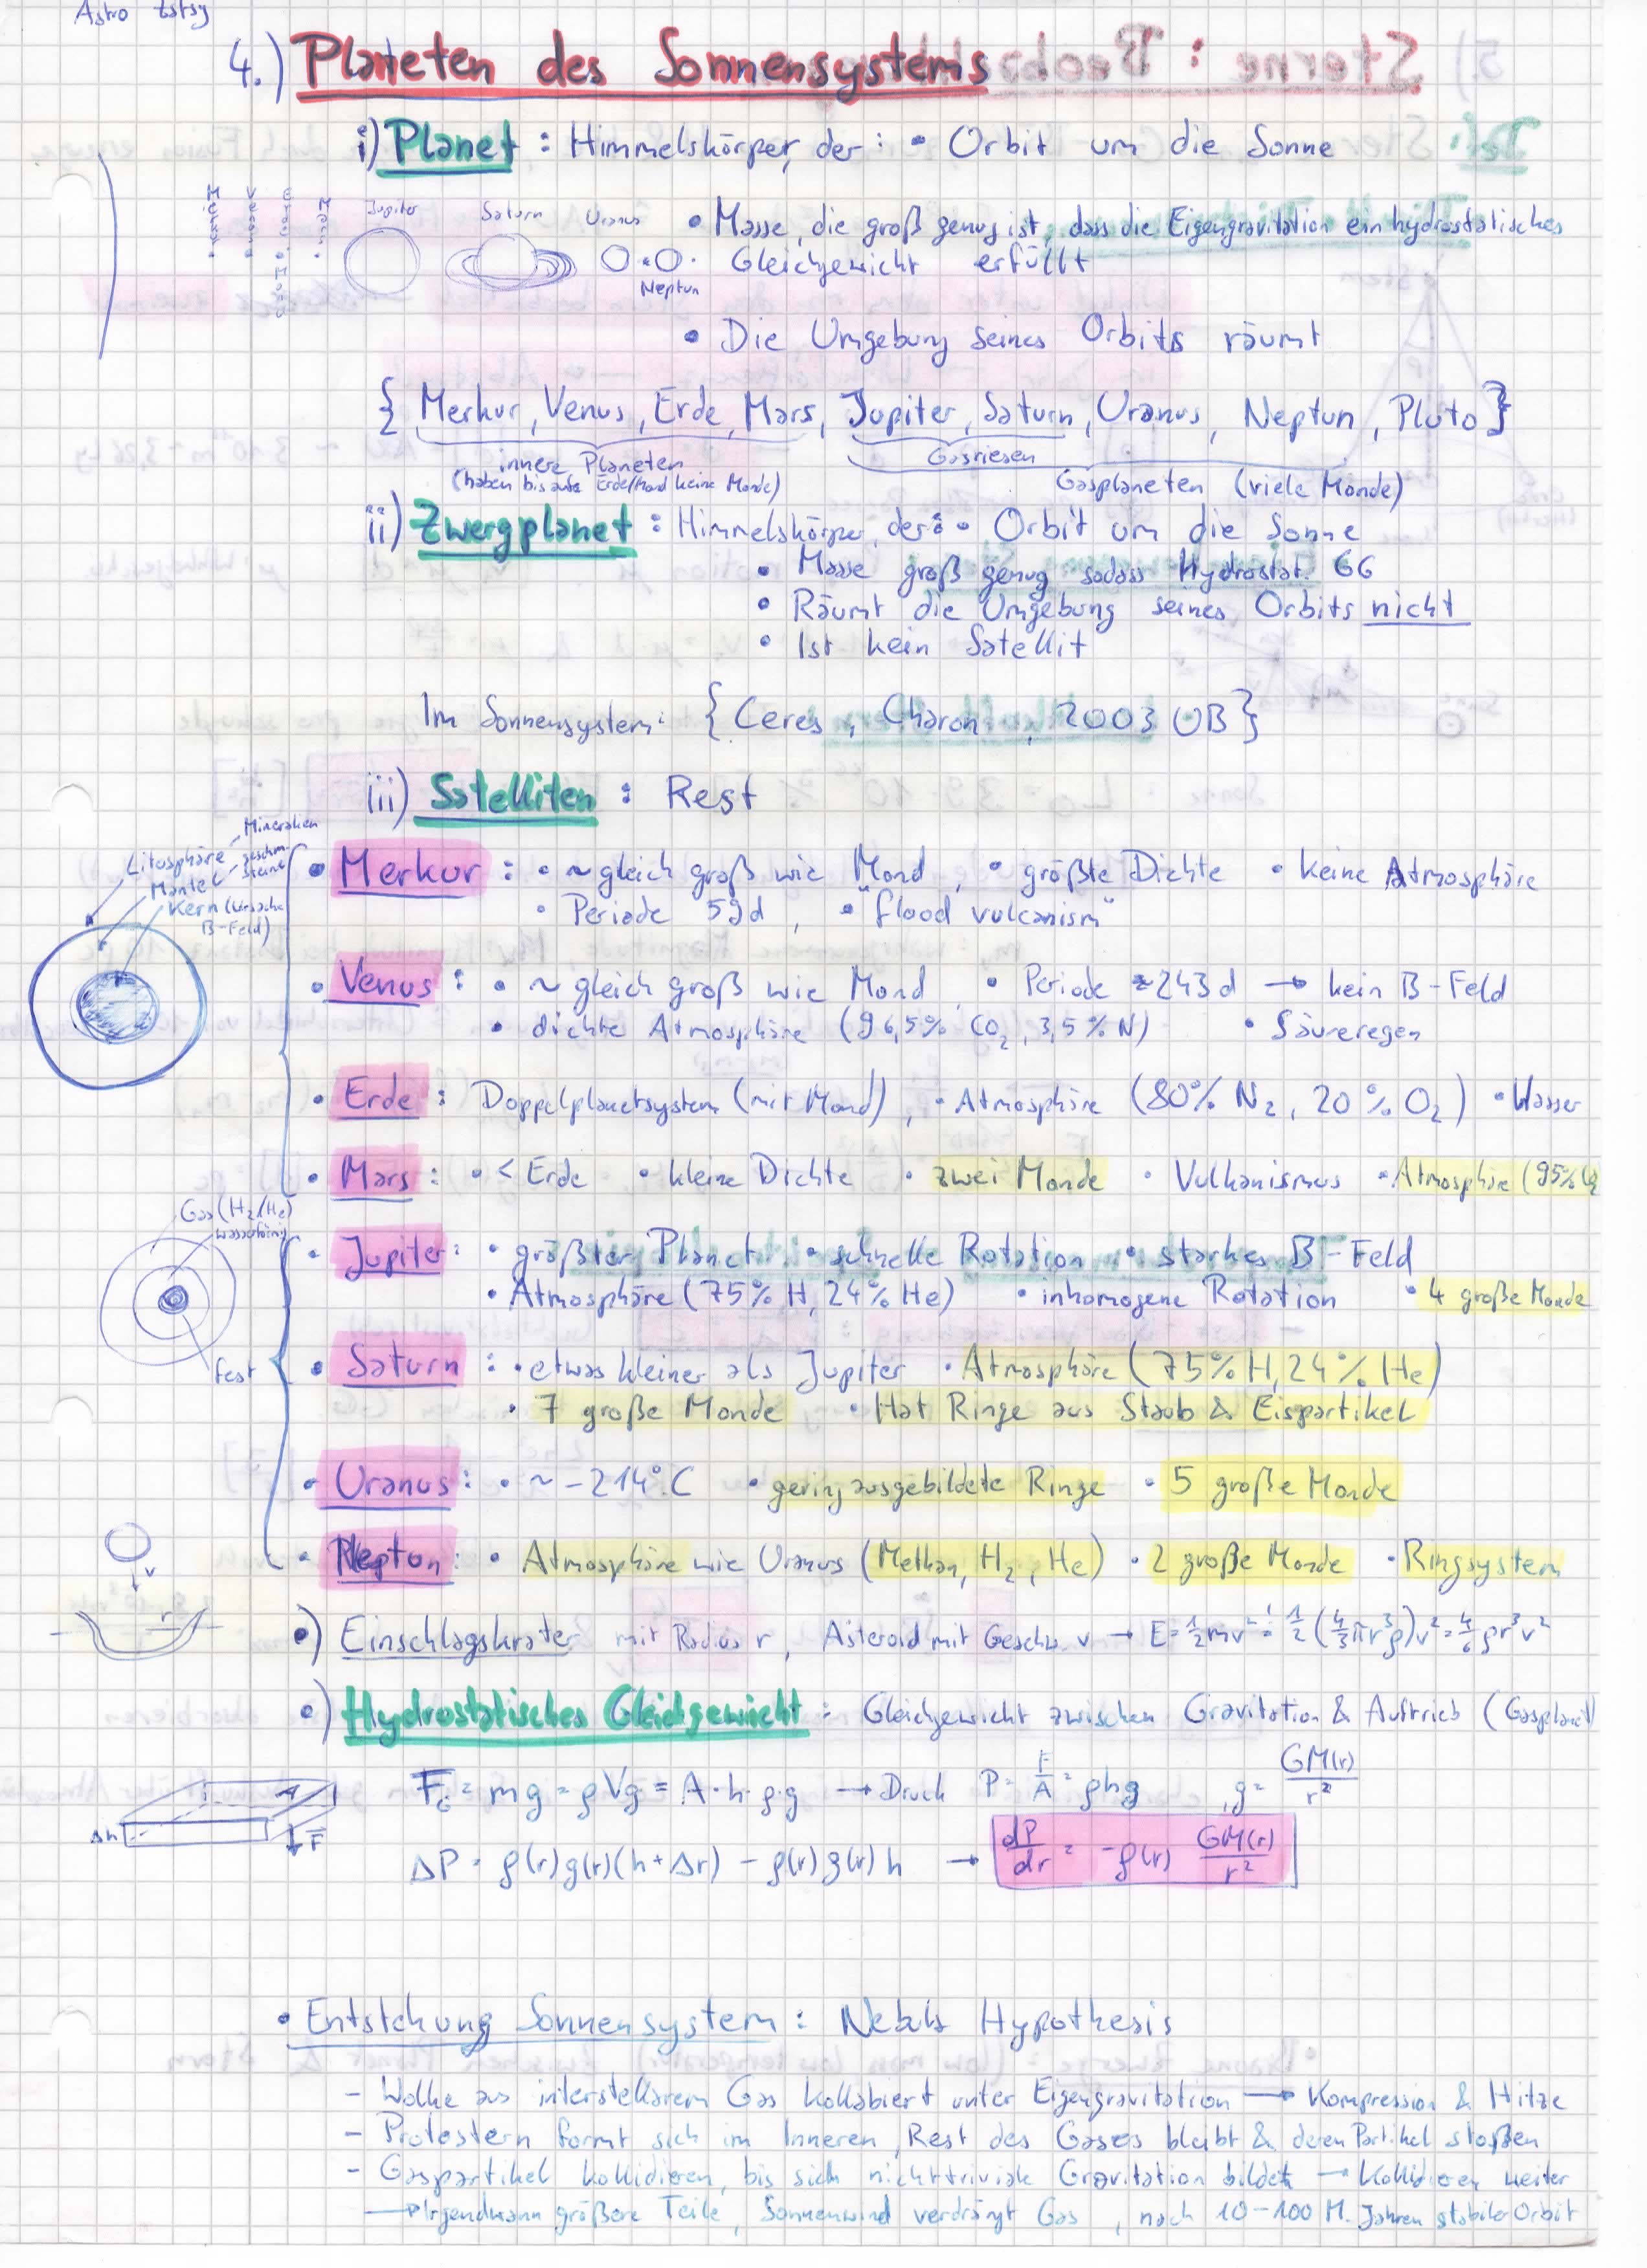 Astro
4.) Planeten des Sonnensystems
i) Planet : Himmelskörper, der : • Orbit um die Sonne
Jupiter Saturn Uranus Neptun
• Masse, die groß genug ist, dass die Eigengravitation ein hydrostatisches
Gleichgewicht erfüllt
• Die Umgebung seines Orbits räumt
{ Merkur, Venus, Erde, Mars, Jupiter, Saturn, Uranus, Neptun, Pluto }
innere Planeten
Gasriesen
(haben bis auf Erde/Mond keine Monde)
Gasplaneten (viele Monde)
ii) Zwergplanet : Himmelskörper, der : • Orbit um die Sonne
• Masse groß genug sodass Hydrostat. GG
• Räumt die Umgebung seines Orbits nicht
• Ist kein Satellit
Im Sonnensystem: { Ceres, Charon, 2003 UB }
iii) Satelliten : Rest
Mineralien
Litosphäre
Mantel
Kern (Ursache
B-Feld)
• Merkur : • ~ gleich groß wie Mond, • größte Dichte • keine Atmosphäre
• Periode 59d, • "flood vulcanism"
• Venus : • ~ gleich groß wie Mond, • Periode ~243d → kein B-Feld
• dichte Atmosphäre (96,5% CO₂, 3,5% N) • Säureregen
• Erde : Doppelplanetsystem (mit Mond), • Atmosphäre (80% N₂, 20% O₂) • Wasser
• Mars : • < Erde • kleine Dichte • zwei Monde • Vulkanismus • Atmosphäre (95%
Gas (H₂/He)
wasserförmig
fest
• Jupiter : • größter Planet • schnelle Rotation • starkes B-Feld
• Atmosphäre (75% H, 24% He) • inhomogene Rotation • 4 große Monde
• Saturn : • etwas kleiner als Jupiter • Atmosphäre (75% H, 24% He)
• 7 große Monde • Hat Ringe aus Staub & Eispartikel
• Uranus : • ~ -214°C • gering ausgebildete Ringe • 5 große Monde
• Neptun : • Atmosphäre wie Uranus (Methan, H₂, He) • 2 große Monde • Ringsystem
v
•) Einschlagskrater mit Radius r, Asteroid mit Geschw. v → E = ½mv² = ½(4/3 πr³ρ)v² = 4/6 ρr³v²
•) Hydrostatisches Gleichgewicht : Gleichgewicht zwischen Gravitation & Auftrieb (Gasplanet)
Δh A F
F_G = mg = ρVg = A·h·ρ·g → Druck P = F/A = ρhg , g = GM(r)/r²
ΔP = ρ(r)g(r)(h+Δr) − ρ(r)g(r)h → dP/dr = −ρ(r) GM(r)/r²
• Entstehung Sonnensystem : Hypothesis
- Wolke aus interstellarem Gas kollabiert unter Eigengravitation → Kompression & Hitze
- Protostern formt sich im Inneren, Rest des Gases bleibt & deren Partikel stoßen
- Gaspartikel kollidieren, bis sich nichttriviale Gravitation bildet → Kollidieren weiter
→ Irgendwann größere Teile, Sonnenwind verdrängt Gas, nach 10-100 M. Jahren stabiler Orbit